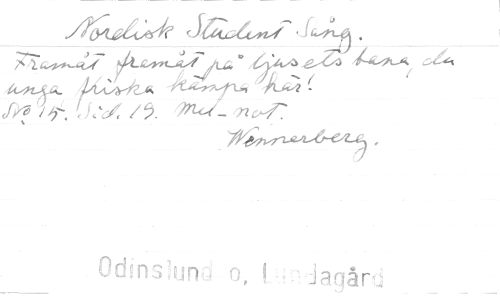 Nordisk Student Sång.
Framåt framåt på ljusets bana, du
unga friska kämpa här!
No 15. Sid. 19. Mu-not.
Wennerberg.
Odinslund o, Lundagård